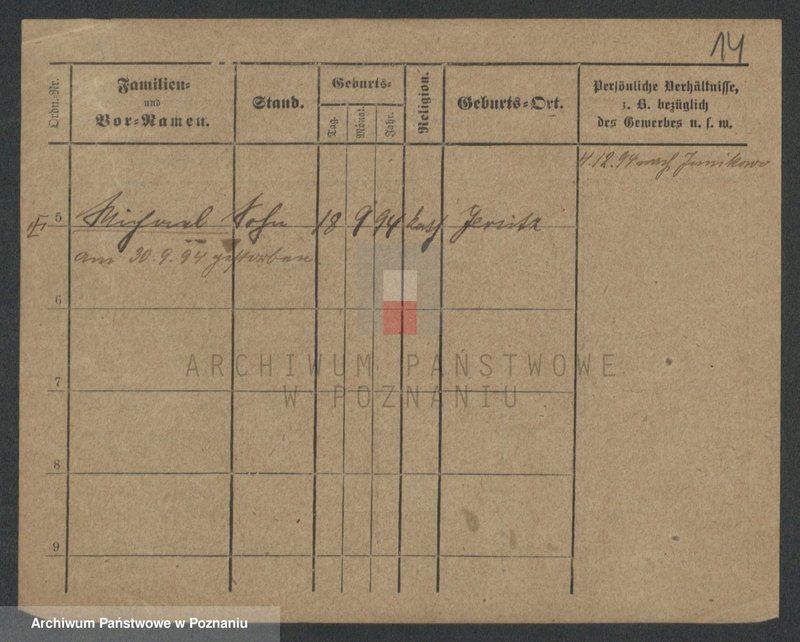 14
Ordn.-Nr.
Familien-
und
Vor-Namen.
Stand.
Geburts-
Tag.
Monat.
Jahr.
Religion.
Geburts-Ort.
Persönliche Verhältnisse,
z. B. bezüglich
des Gewerbes u. s. w.
4.12.94 nach Junikowo
5 Michael Sohn 18 9 94 kath Jersitz
am 30.9.94 gestorben
6
7
8
9
ARCHIWUM PAŃSTWOWE
W POZNANIU
Archiwum Państwowe w Poznaniu